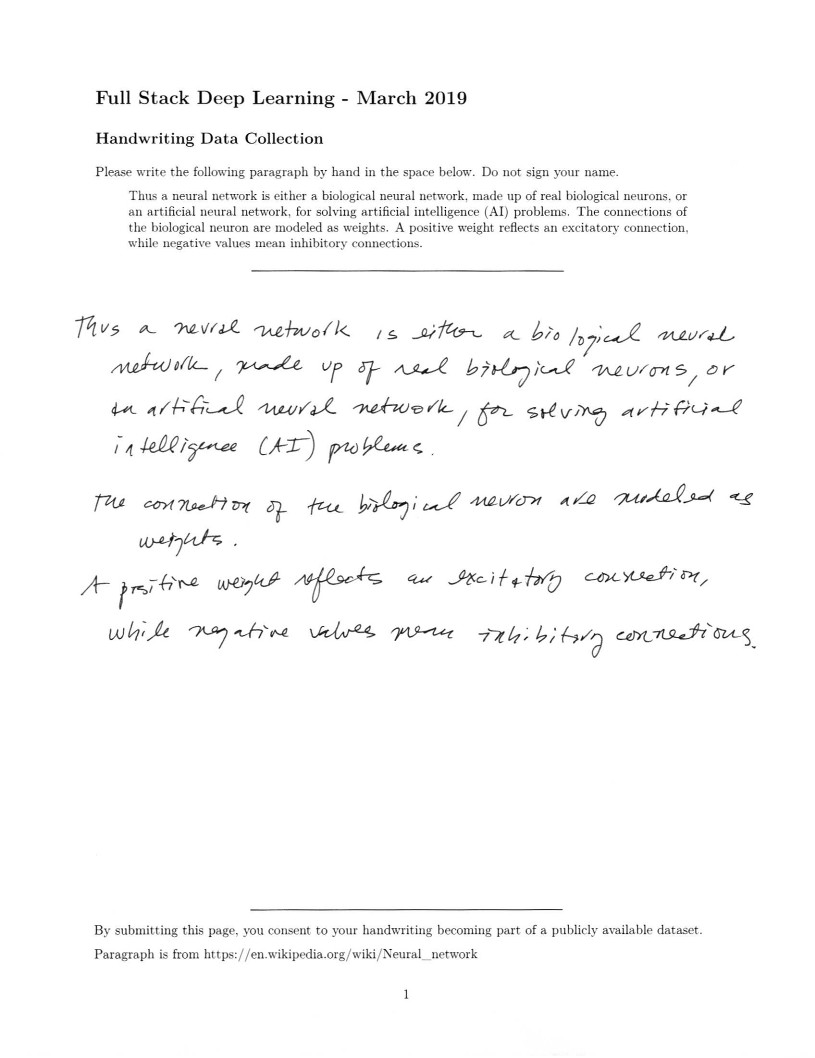 Full Stack Deep Learning - March 2019
Handwriting Data Collection
Please write the following paragraph by hand in the space below. Do not sign your name.
Thus a neural network is either a biological neural network, made up of real biological neurons, or
an artificial neural network, for solving artificial intelligence (AI) problems. The connections of
the biological neuron are modeled as weights. A positive weight reflects an excitatory connection,
while negative values mean inhibitory connections.
Thus a neural network is either a biological neural
network, made up of real biological neurons, or
an artifical neural network, for solving artificial
intelligence (AI) problems.
The connection of the biological neuron are modeled as
weights.
A positive weight reflects an excitatory connection,
while negative values mean inhibitory connections.
By submitting this page, you consent to your handwriting becoming part of a publicly available dataset.
Paragraph is from https://en.wikipedia.org/wiki/Neural_network
1